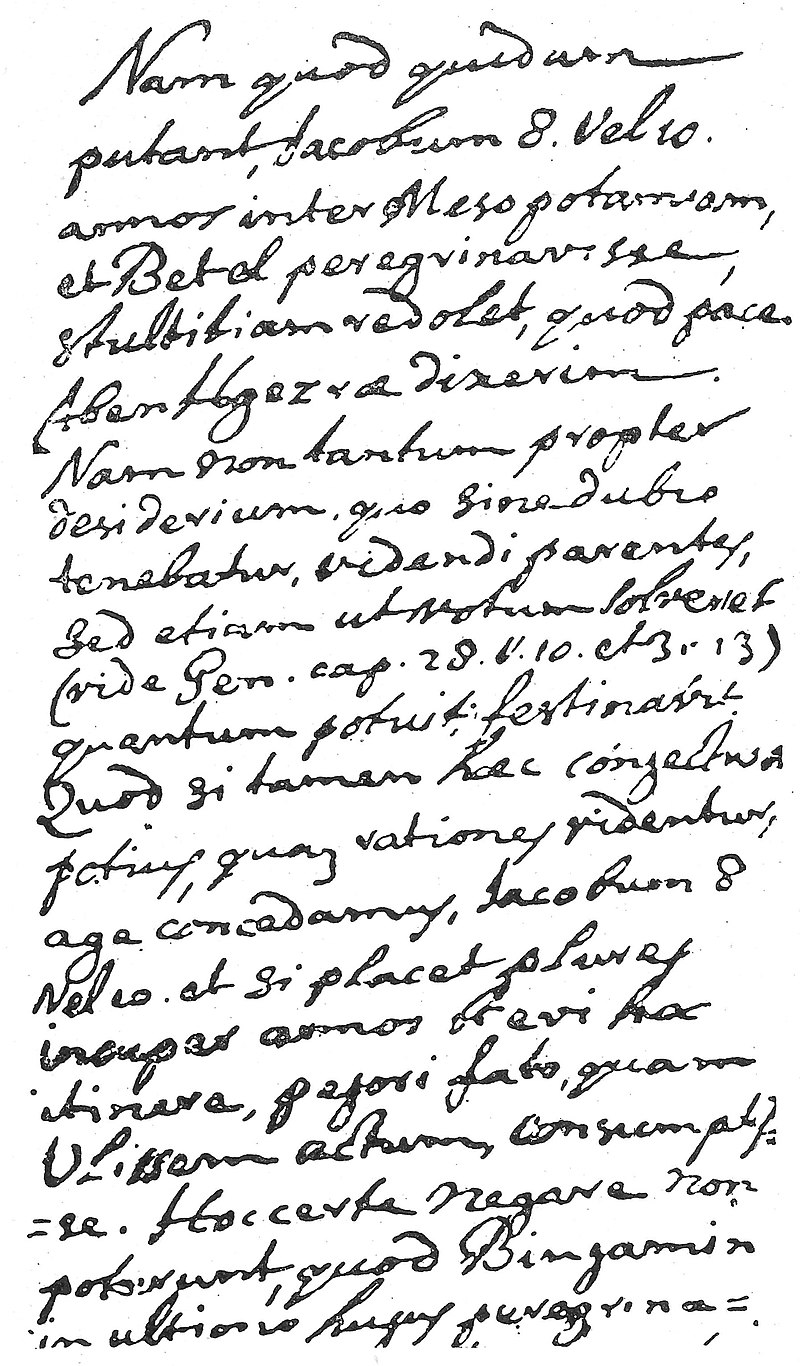 Nam quod quidum
putant, Jacobum 8. vel 10.
annos inter Mesopotamiam,
et Betel peregrinavisse,
stultitiam redolet, quod pace
Aben Hgezræ dixerim.
Nam non tantum propter
desiderium, quo sine dubio
tenebatur, videndi parentes,
sed etiam ut votum solveret
(vide Gen. cap. 28. v. 10. et 31. 13)
quantum potuit, festinavit.
Quod si tamen hæc conjectura
potius, quam rationes videntur,
age concedamus, Jacobum 8
vel 10. et si placet plures
insuper annos brevi hac
itinere, pejori fato, quam
Ulissem actum, consumpsis=
=se. Hoc certe negare non
poterunt, quod Binjamin
in ultimo hujus peregrina=